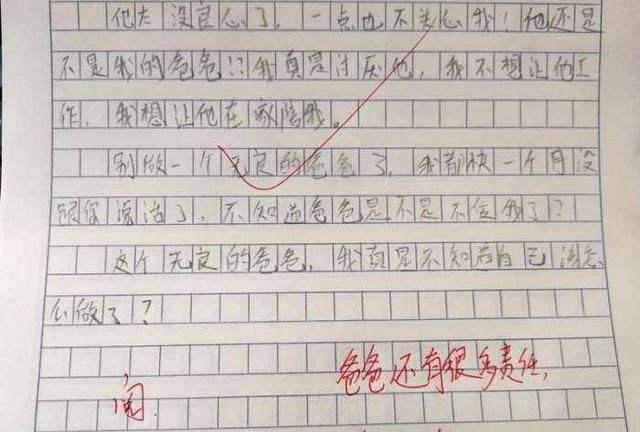 他太没良心了，一点也不关心我！他还是
不是我的爸爸！？我真是讨厌他，我不想让他工
作，我想让他在家陪我。
别做一个无良的爸爸了，我都快一个月没
跟你说话了，不知道爸爸是不是不位我了？
这个无良的爸爸，我真是不知道自己该怎
么做了？
爸爸还有很多责任，
阅.